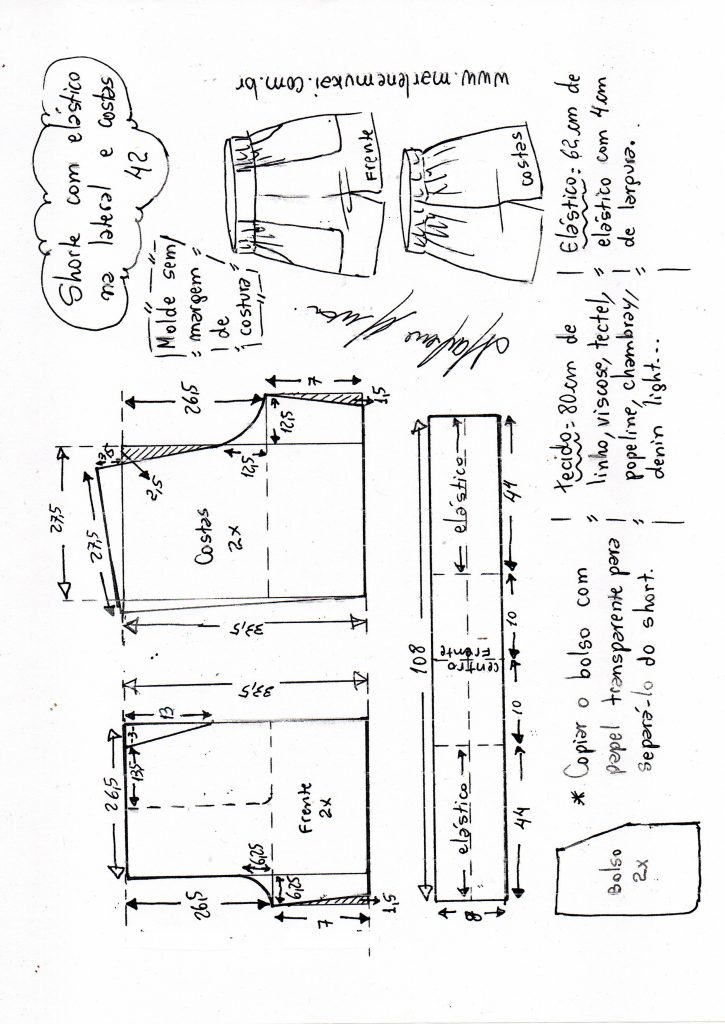 Shorte com elástico
na lateral e costas
42
Molde sem
margem
de
costura
www.marlenemukai.com.br
Frente
costas
26,5
13
3
13,5
33,5
26,5
6,25
6,25
7
1,5
Frente
2x
27,5
27,5
3
2,5
33,5
26,5
12,5
12,5
7
1,5
Costas
2x
108
8
elástico
centro
Frente
elástico
44
10
10
44
Bolso
2x
* Copiar o bolso com
papel transparente para
separá-lo do short.
Tecido= 80cm de
linho, viscose, tectel,
popeline, chambray,
denin light...
Elástico= 62cm de
elástico com 4cm
de largura.